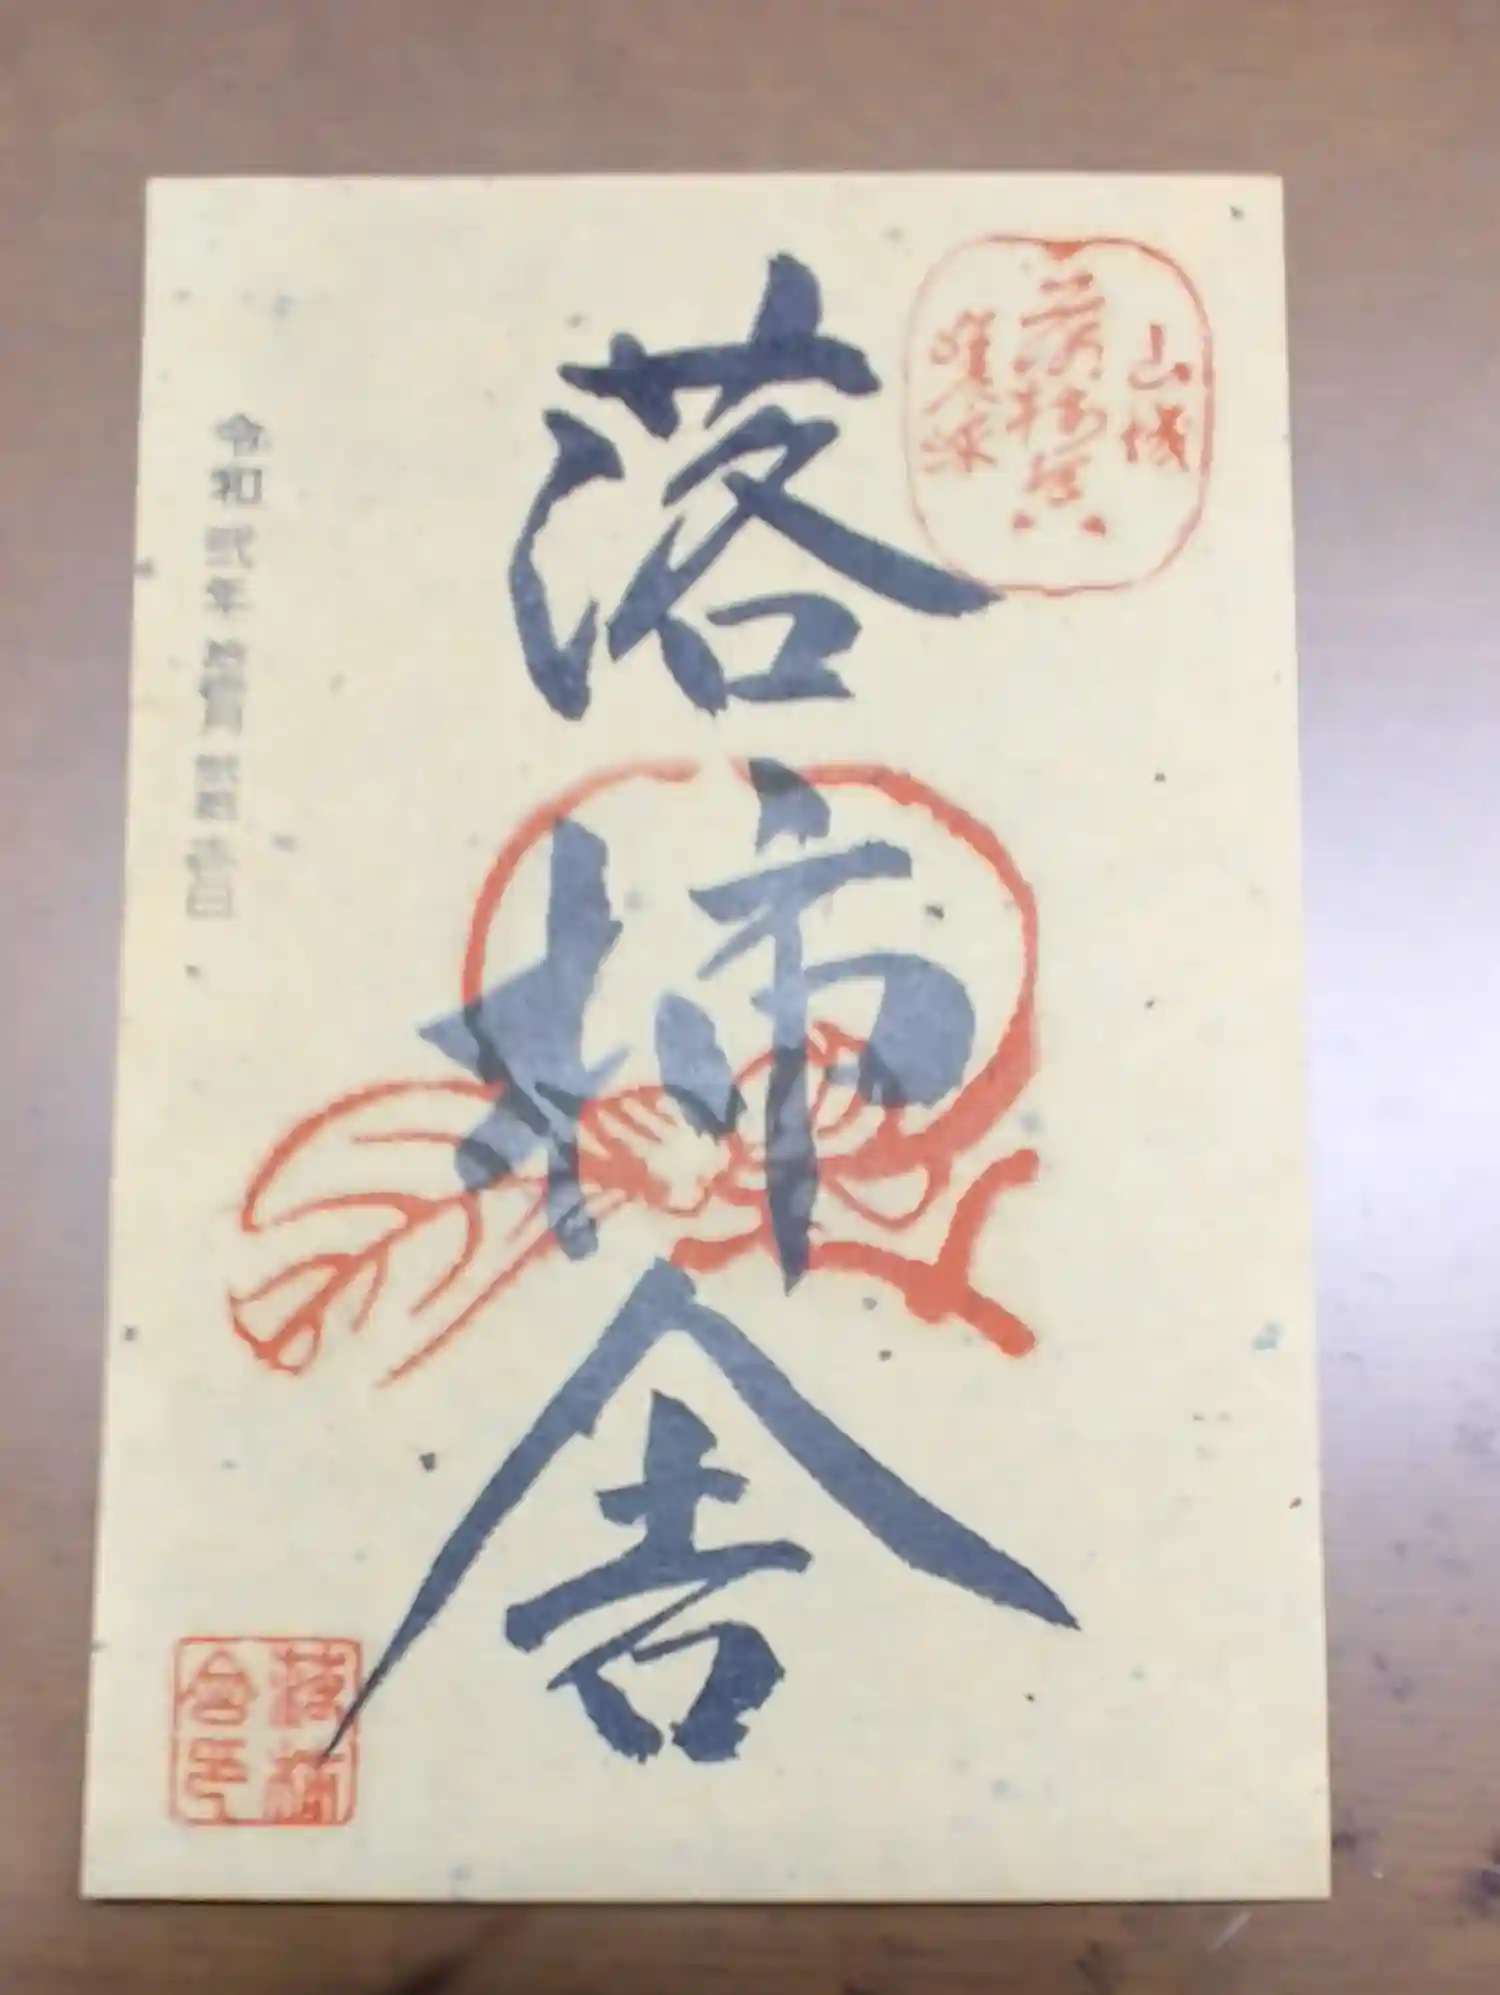 山城
嵯峨
落柿舎
令和弐年拾壹月弐拾壱日
落柿
舎印